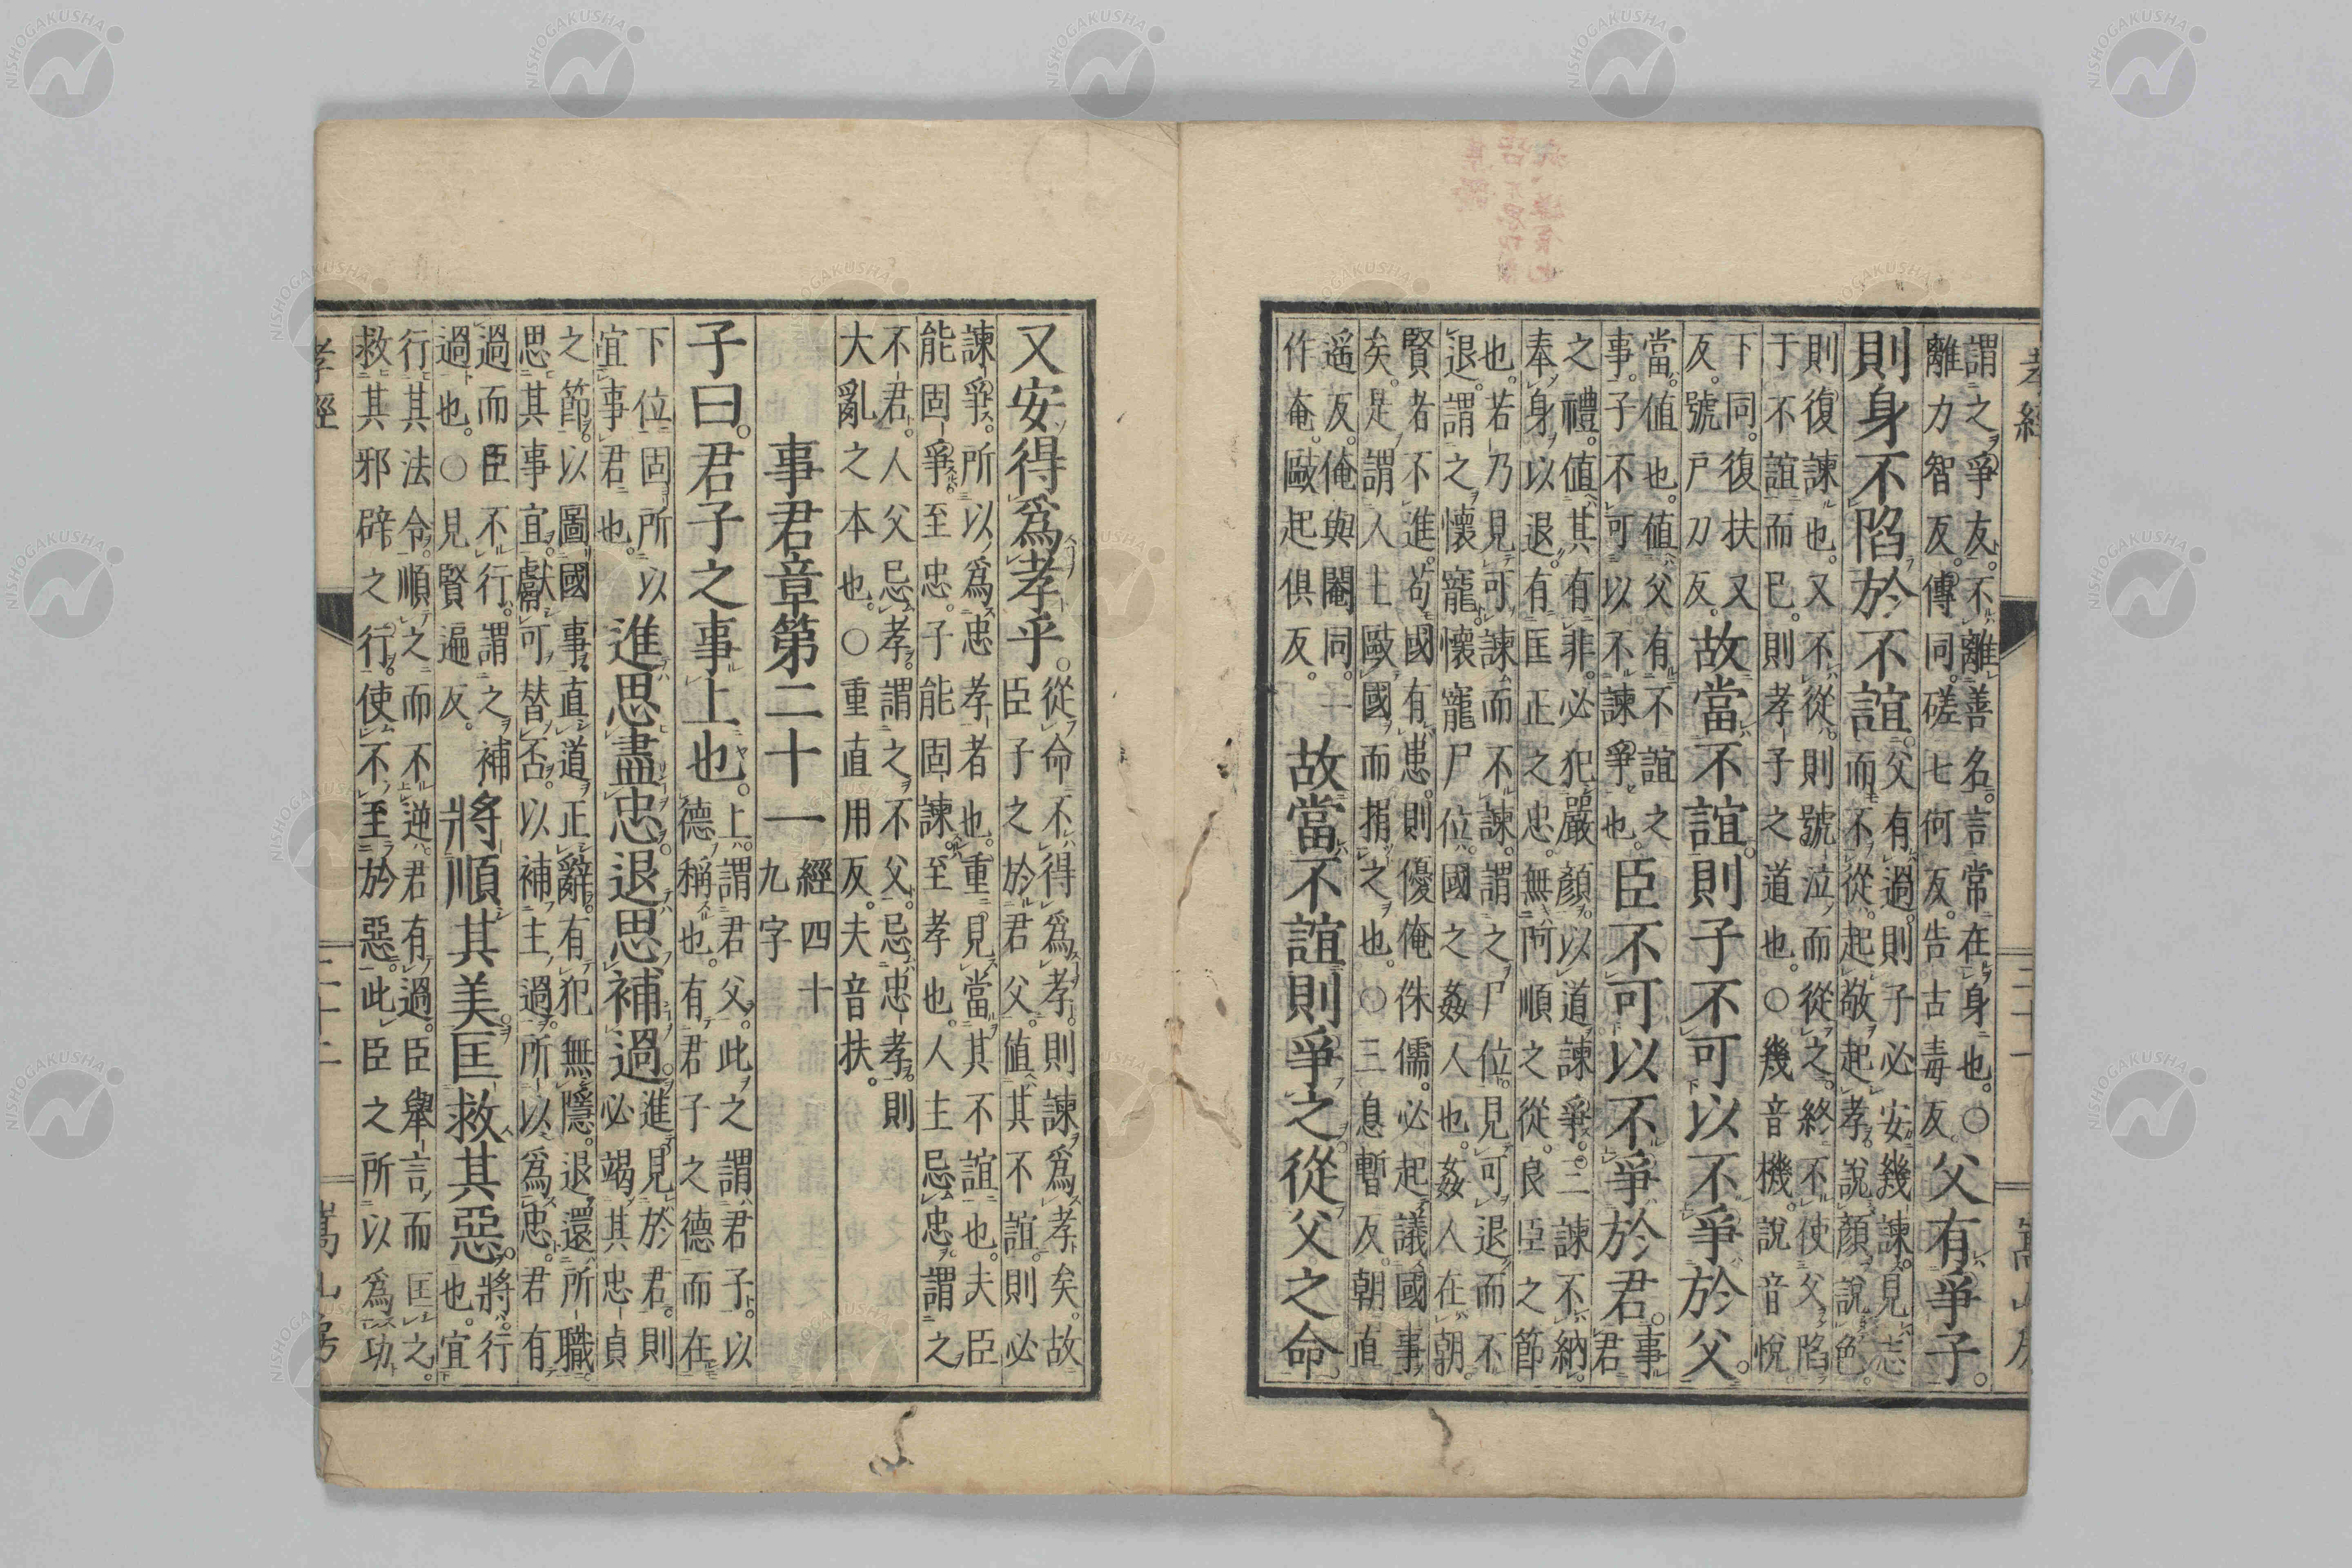 孝經
三十一
嵩山房
謂之爭友。不離善名。言常在身也。○
離力智反。傳同。磋七何反。告古毒反。
父有爭子。
則身不陷於不誼。
父有過。則子必安幾諫。見志
而不從。起敬起孝。說顏說色。
則復諫也。又不從。則號泣而從之。終不使父陷
于不誼而已。則孝子之道也。○幾音機。說音悅。
下同。復扶又
反。號戶刀反。
故當不誼。則子不可以不爭於父。
當。値也。値父有不誼之
事。子不可以不諫爭也。
臣不可以不爭於君。
事
君
之禮。値其有非。必犯嚴顏以道諫爭。三諫不納。
奉身以退。有匡正之忠。無阿順之從。良臣之節
也。若乃見可諫而不諫。謂之尸位。見可退而不
退。謂之懷寵。懷寵尸位。國之姦人也。姦人在朝。
賢者不進。苟國有患。則優俺侏儒。必起議國事
矣。是謂人主毆國而捐之也。○三息暫反。朝直
遥反。俺與閹同。
作奄。毆起俱反。
故當不誼則爭之。從父之命
又安得爲孝乎。
從命不得爲孝。則諫爲孝矣。故
臣子之於君父。値其不誼。則必
諫爭。所以爲忠孝者也。重見當其不誼也。夫臣
能固爭。至忠。子能固諫。至孝也。人主忌忠。謂之
不君。人父忌孝。謂之不父。忌忠孝。則
大亂之本也。○重直用反。夫音扶。
事君章第二十一
經四十
九字
子曰。君子之事上也。
上。謂君父。此之謂君子。以
德稱也。有君子之德而在
下位。固所以
宜事君也。
進思盡忠。退思補過。
進見於君。則
必竭其忠貞
之節。以圖國事。直道正辭。有犯無隱。退還所職
思其事宜。獻可替否。以補主過。所以爲忠。君有
過而臣不行。謂之補
過也。○見賢遍反。
將順其美。匡救其惡。
將。行
也。宜
行其法令。順之而不逆。君有過。臣舉言而匡之。
救其邪辟之行。使不至於惡。此臣之所以爲功
孝經
三十二
嵩山房